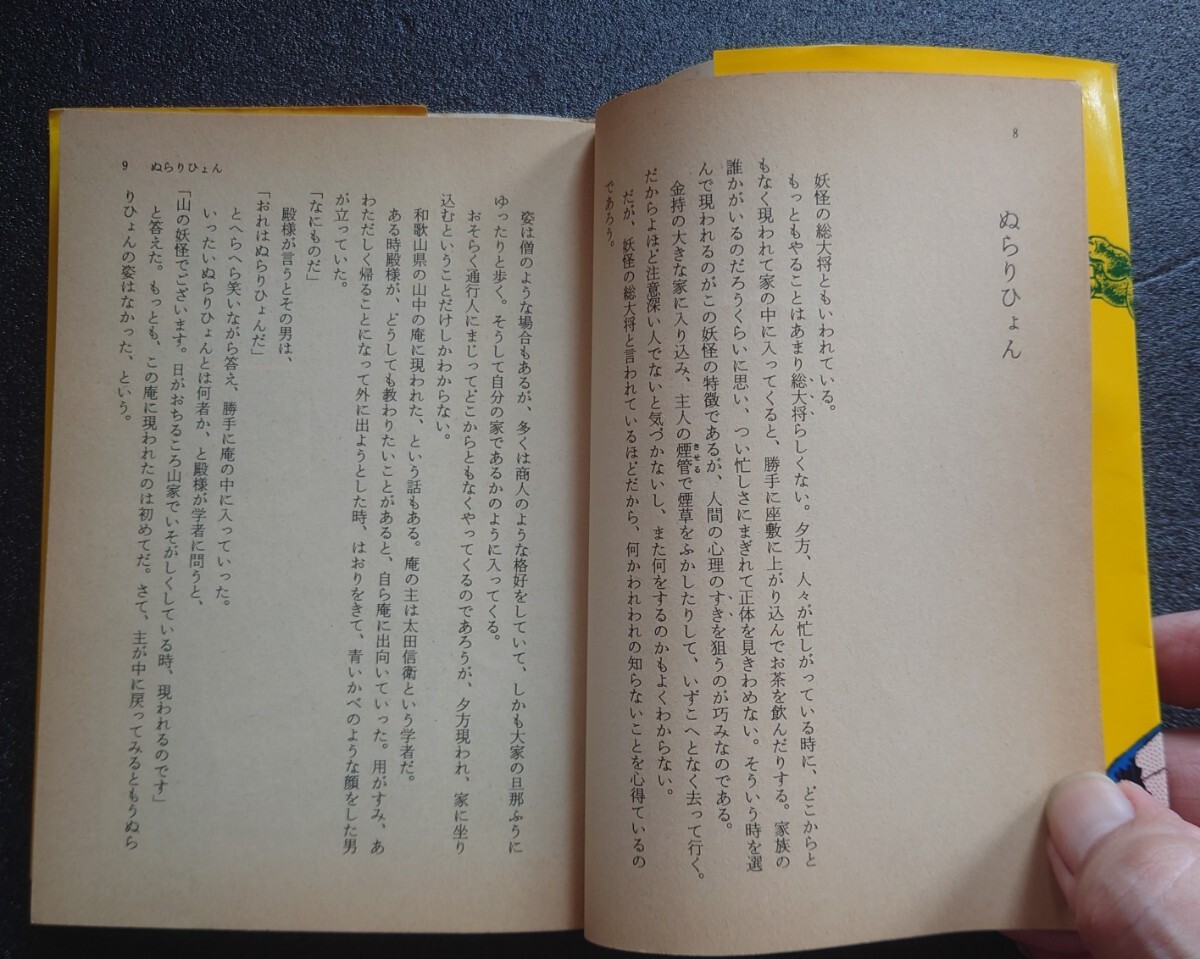 8
ぬらりひょん
妖怪の総大将ともいわれている。
もっともやることはあまり総大将らしくない。夕方、人々が忙しがっている時に、どこからと
もなく現われて家の中に入ってくると、勝手に座敷に上がり込んでお茶を飲んだりする。家族の
誰かがいるのだろうくらいに思い、つい忙しさにまぎれて正体を見きわめない。そういう時を選
んで現われるのがこの妖怪の特徴であるが、人間の心理のすきを狙うのが巧みなのである。
金持の大きな家に入り込み、主人の煙管で煙草をふかしたりして、いずこへとなく去って行く。
きせる
だからよほど注意深い人でないと気づかないし、また何をするのかもよくわからない。
だが、妖怪の総大将と言われているほどだから、何かわれわれの知らないことを心得ているの
であろう。
9 ぬらりひょん
姿は僧のような場合もあるが、多くは商人のような格好をしていて、しかも大家の旦那ふうに
ゆったりと歩く。そうして自分の家であるかのように入ってくる。
おそらく通行人にまじってどこからともなくやってくるのであろうが、夕方現われ、家に坐り
込むということだけしかわからない。
和歌山県の山中の庵に現われた、という話もある。庵の主は太田信衛という学者だ。
ある時殿様が、どうしても教わりたいことがあると、自ら庵に出向いていった。用がすみ、あ
わただしく帰ることになって外に出ようとした時、はおりをきて、青いかべのような顔をした男
が立っていた。
「なにものだ」
殿様が言うとその男は、
「おれはぬらりひょんだ」
とへらへら笑いながら答え、勝手に庵の中に入っていった。
いったいぬらりひょんとは何者か、と殿様が学者に問うと、
「山の妖怪でございます。日がおちるころ山家でいそがしくしている時、現われるのです」
と答えた。もっとも、この庵に現われたのは初めてだ。さて、主が中に戻ってみるともうぬら
りひょんの姿はなかった、という。